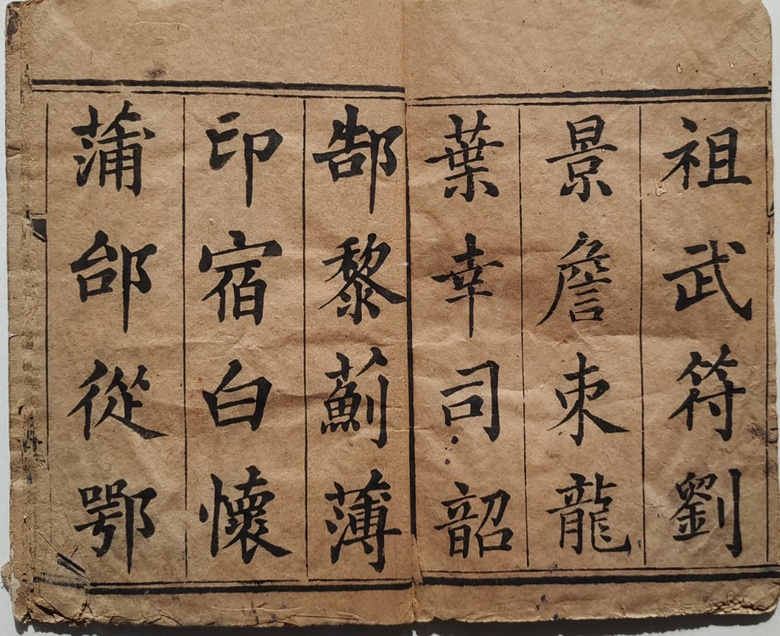 祖武符劉
景詹束龍
葉幸司韶
郜黎薊薄
印宿白懷
蒲邰從鄂